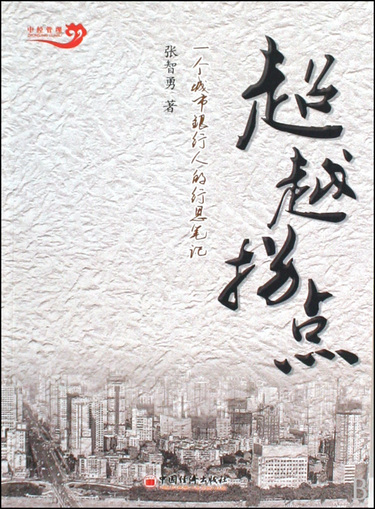 中经管理
超越拐点
一个城市银行人的行思笔记
张智勇·著
中国经济出版社
B